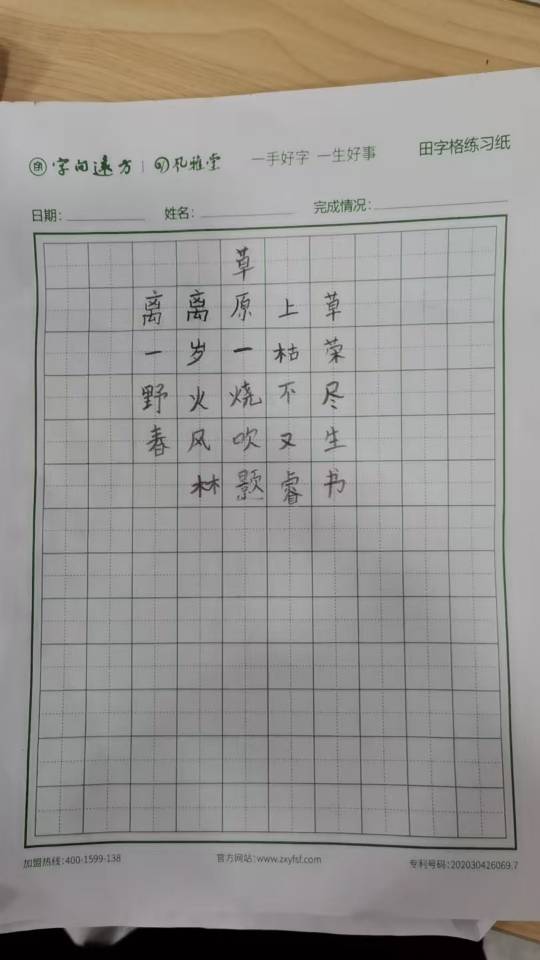 字向远方 风雅堂 一手好字 一生好事 田字格练习纸
日期: 姓名: 完成情况:
草
离离原上草
一岁一枯荣
野火烧不尽
春风吹又生
林颢睿书
加盟热线:400-1599-138 官方网站:www.zxyfsf.com 专利号码:202030426069.7